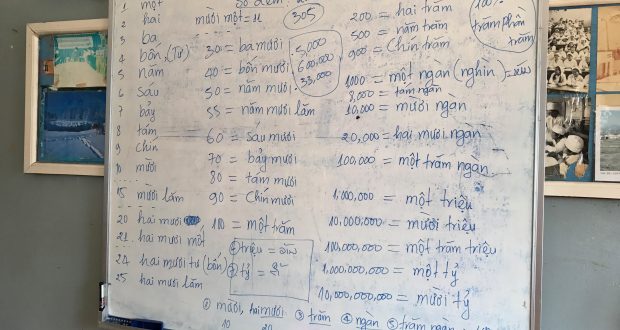 1 một
2 hai
3 ba
4 bốn (Tư)
5 năm
6 sáu
7 bảy
8 tám
9 chín
10 mười
15 mười lăm
20 hai mươi
21 hai mươi mốt
24 hai mươi tư (bốn)
25 hai mươi lăm
mười một = 11
30 = ba mươi
40 = bốn mươi
50 = năm mươi
55 = năm mươi lăm
60 = sáu mươi
70 = bảy mươi
80 = tám mươi
90 = chín mươi
100 = một trăm
305
5,000
600,000
33,000
200 = hai trăm
500 = năm trăm
900 = chín trăm
1000 = một ngàn (nghìn)
8,000 = tám ngàn
10,000 = mười ngàn
20,000 = hai mươi ngàn
100,000 = một trăm ngàn
1,000,000 = một triệu
10,000,000 = mười triệu
100,000,000 = một trăm triệu
1,000,000,000 = một tỷ
10,000,000,000 = mười tỷ
100%
trăm phần
trăm
triệu =
tỷ =
① mười, hai mươi ③ trăm ④ ngàn ⑤ trăm ngàn
10 20